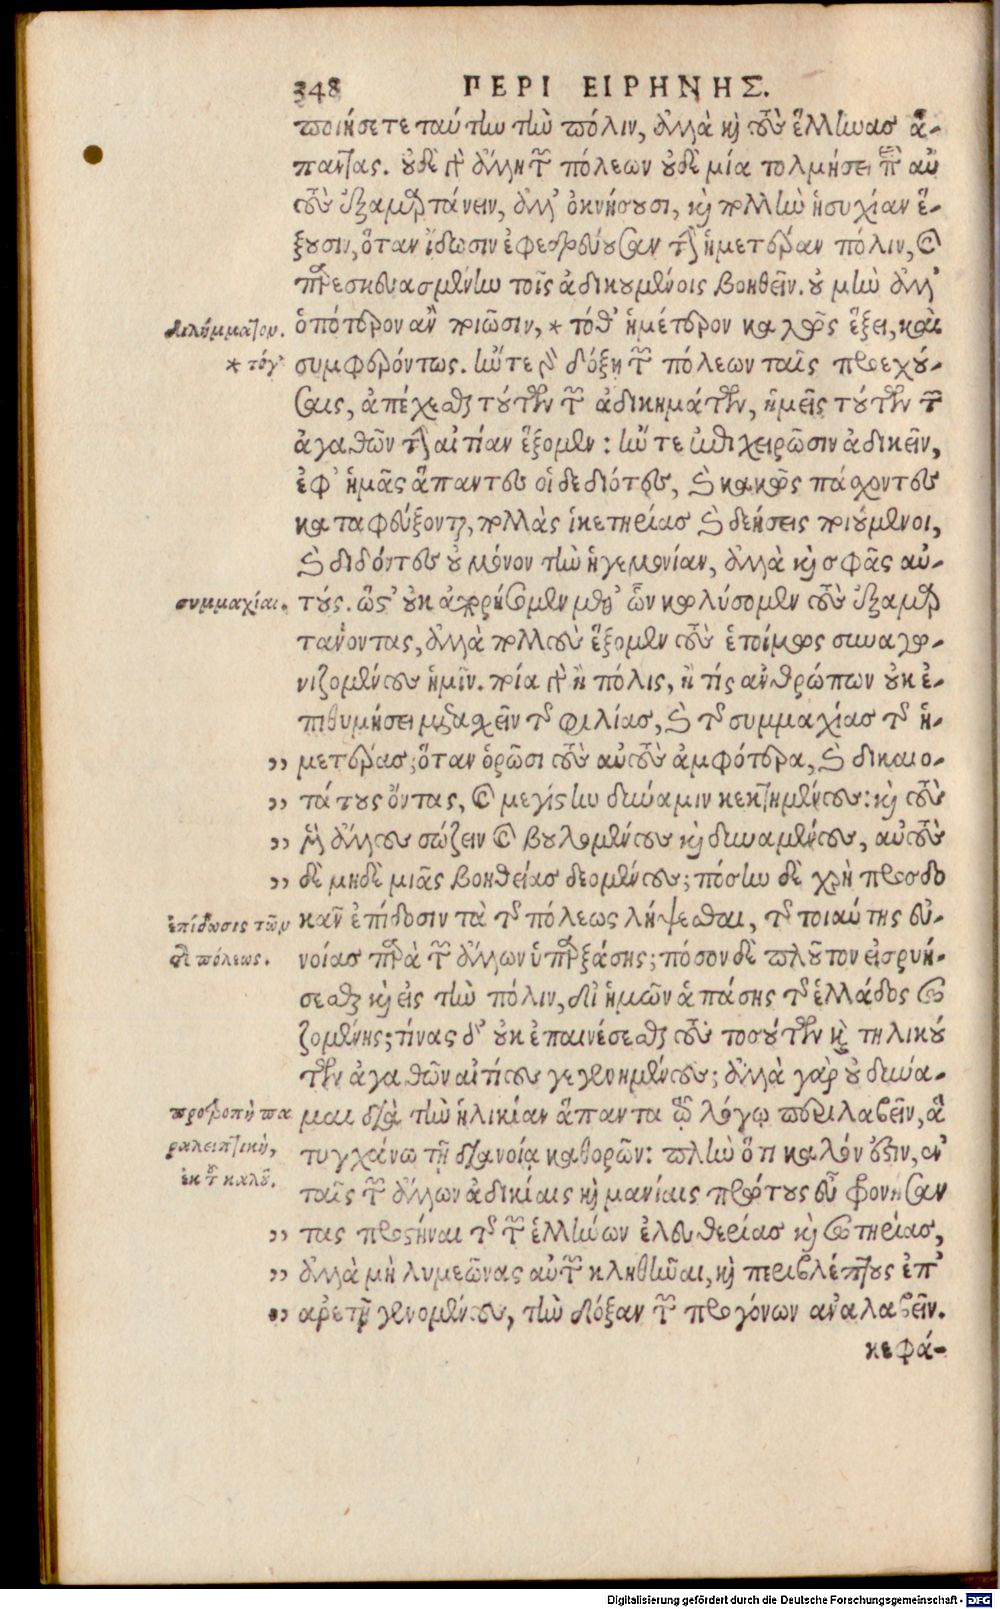 348 ΠΕΡΙ ΕΙΡΗΝΗΣ.
ποιήσετε ταύτην τὴν πόλιν, ἀλλὰ καὶ τοὺς ἕλληνας ἅ-
παντας. οὐδὲ γὰρ ἄλλη τῶν πόλεων οὐδὲ μία τολμήσει περὶ αὐ
τοὺς ἐξαμαρτάνειν, ἀλλ' ὀκνήσουσι, καὶ πολλὴν ἡσυχίαν ἕ-
ξουσιν, ὅταν ἴδωσιν ἐφεδρεύουσαν τὴν ἡμετέραν πόλιν, καὶ
παρεσκευασμένην τοῖς ἀδικουμένοις βοηθεῖν. οὐ μὴν ἀλλ'
διλήμματον. ὁπότερον ἂν ποιῶσιν, * τόθ' ἡμέτερον καλῶς ἕξει, καὶ
* τόγ' συμφερόντως. ἤν τε γὰρ δόξῃ τῶν πόλεων ταῖς προεχού-
σαις, ἀπέχεσθαι τούτων τῶν ἀδικημάτων, ἡμεῖς τούτων τῶν
ἀγαθῶν τὴν αἰτίαν ἕξομεν: ἤν τε ἐπιχειρῶσιν ἀδικεῖν,
ἐφ' ἡμᾶς ἅπαντες οἱ δεδιότες, καὶ κακῶς πάσχοντες
καταφεύξονται, πολλὰς ἱκετηρίας καὶ δεήσεις ποιούμενοι,
καὶ διδόντες οὐ μόνον τὴν ἡγεμονίαν, ἀλλὰ καὶ σφᾶς αὐ-
συμμαχίαι. τούς. ὥστ' οὐκ ἀπορήσομεν μεθ' ὧν κωλύσομεν τοὺς ἐξαμαρ
τάνοντας, ἀλλὰ πολλοὺς ἕξομεν τοὺς ἑτοίμως συναγω-
νιζομένους ἡμῖν. ποία γὰρ ἢ πόλις, ἢ τίς ἀνθρώπων οὐκ ἐ-
πιθυμήσει μετασχεῖν τῆς φιλίας, καὶ τῆς συμμαχίας τῆς ἡ-
,, μετέρας; ὅταν ὁρῶσι τοὺς αὐτοὺς ἀμφότερα, καὶ δικαιο-
,, τάτους ὄντας, καὶ μεγίστην δύναμιν κεκτημένους: καὶ τοὺς
,, μὲν ἄλλους σώζειν καὶ βουλομένους καὶ δυναμένους, αὐτοὺς
,, δὲ μηδὲ μιᾶς βοηθείας δεομένους; πόσην δὲ χρὴ προσδο
ἐπίδοσις τῶν κᾶν ἐπίδοσιν τὰ τῆς πόλεως λήψεσθαι, τῆς τοιαύτης εὐ-
τῆς πόλεως. νοίας παρὰ τῶν ἄλλων ὑπαρξάσης; πόσον δὲ πλοῦτον εἰσρυή-
σεσθαι καὶ εἰς τὴν πόλιν, δι' ἡμῶν ἁπάσης τῆς ἑλλάδος σω
ζομένης; τίνας δ' οὐκ ἐπαινέσεσθαι τοὺς τοσούτων καὶ τηλικού
των ἀγαθῶν αἰτίους γεγενημένους; ἀλλὰ γὰρ οὐ δύνα-
προτροπὴ πα μαι διὰ τὴν ἡλικίαν ἅπαντα τῷ λόγῳ περιλαβεῖν, ἃ
ραλειπτικὴ, τυγχάνω τῇ διανοίᾳ καθορῶν: πλὴν ὅτι καλόν ἐστιν, ἐν
ἐκ τοῦ καλοῦ. ταῖς τῶν ἄλλων ἀδικίαις καὶ μανίαις πρώτους εὖ φρονήσαν
,, τας προστῆναι τῆς τῶν ἑλλήνων ἐλευθερίας καὶ σωτηρίας,
,, ἀλλὰ μὴ λυμεῶνας αὐτῶν κληθῆναι, καὶ περιβλέπτους ἐπ'
,, ἀρετῇ γενομένους, τὴν δόξαν τῶν προγόνων ἀναλαβεῖν.
κεφά-
Digitalisierung gefördert durch die Deutsche Forschungsgemeinschaft - DFG